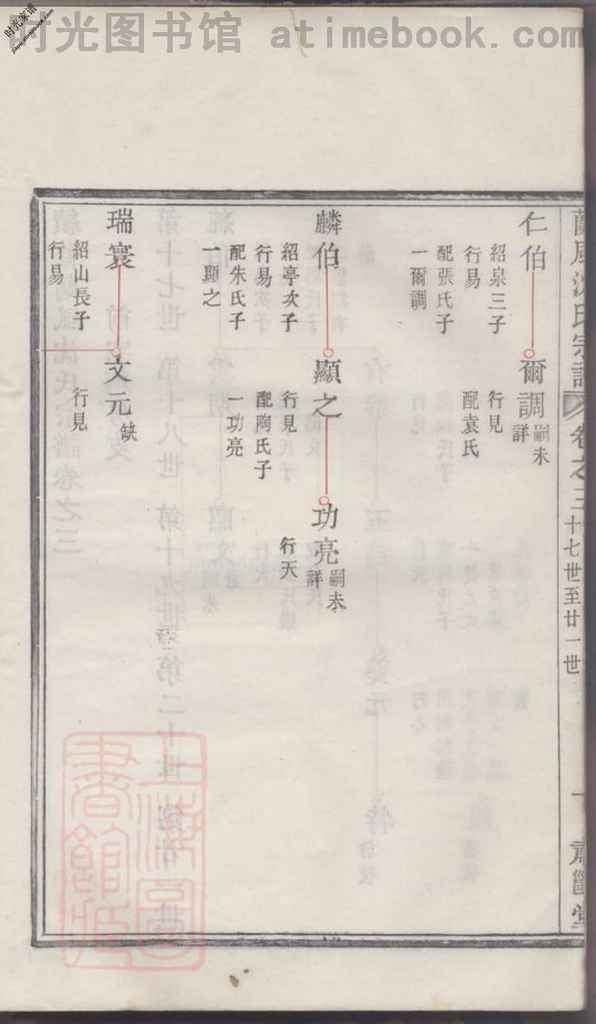 时光图书馆 atimebook.com
时光家谱
蘭風沈氏宗譜 卷之三 十七世至廿一世 肅雝堂
仁伯
紹泉三子
行易
配張氏子
一爾調
爾調
嗣未
詳
行見
配袁氏
麟伯
紹亭次子
行易
配朱氏子
一顯之
顯之
行見
配陶氏子
一功亮
功亮
嗣未
詳
行天
瑞寰
紹山長子
行易
文元
缺
行見
上海圖
書館藏